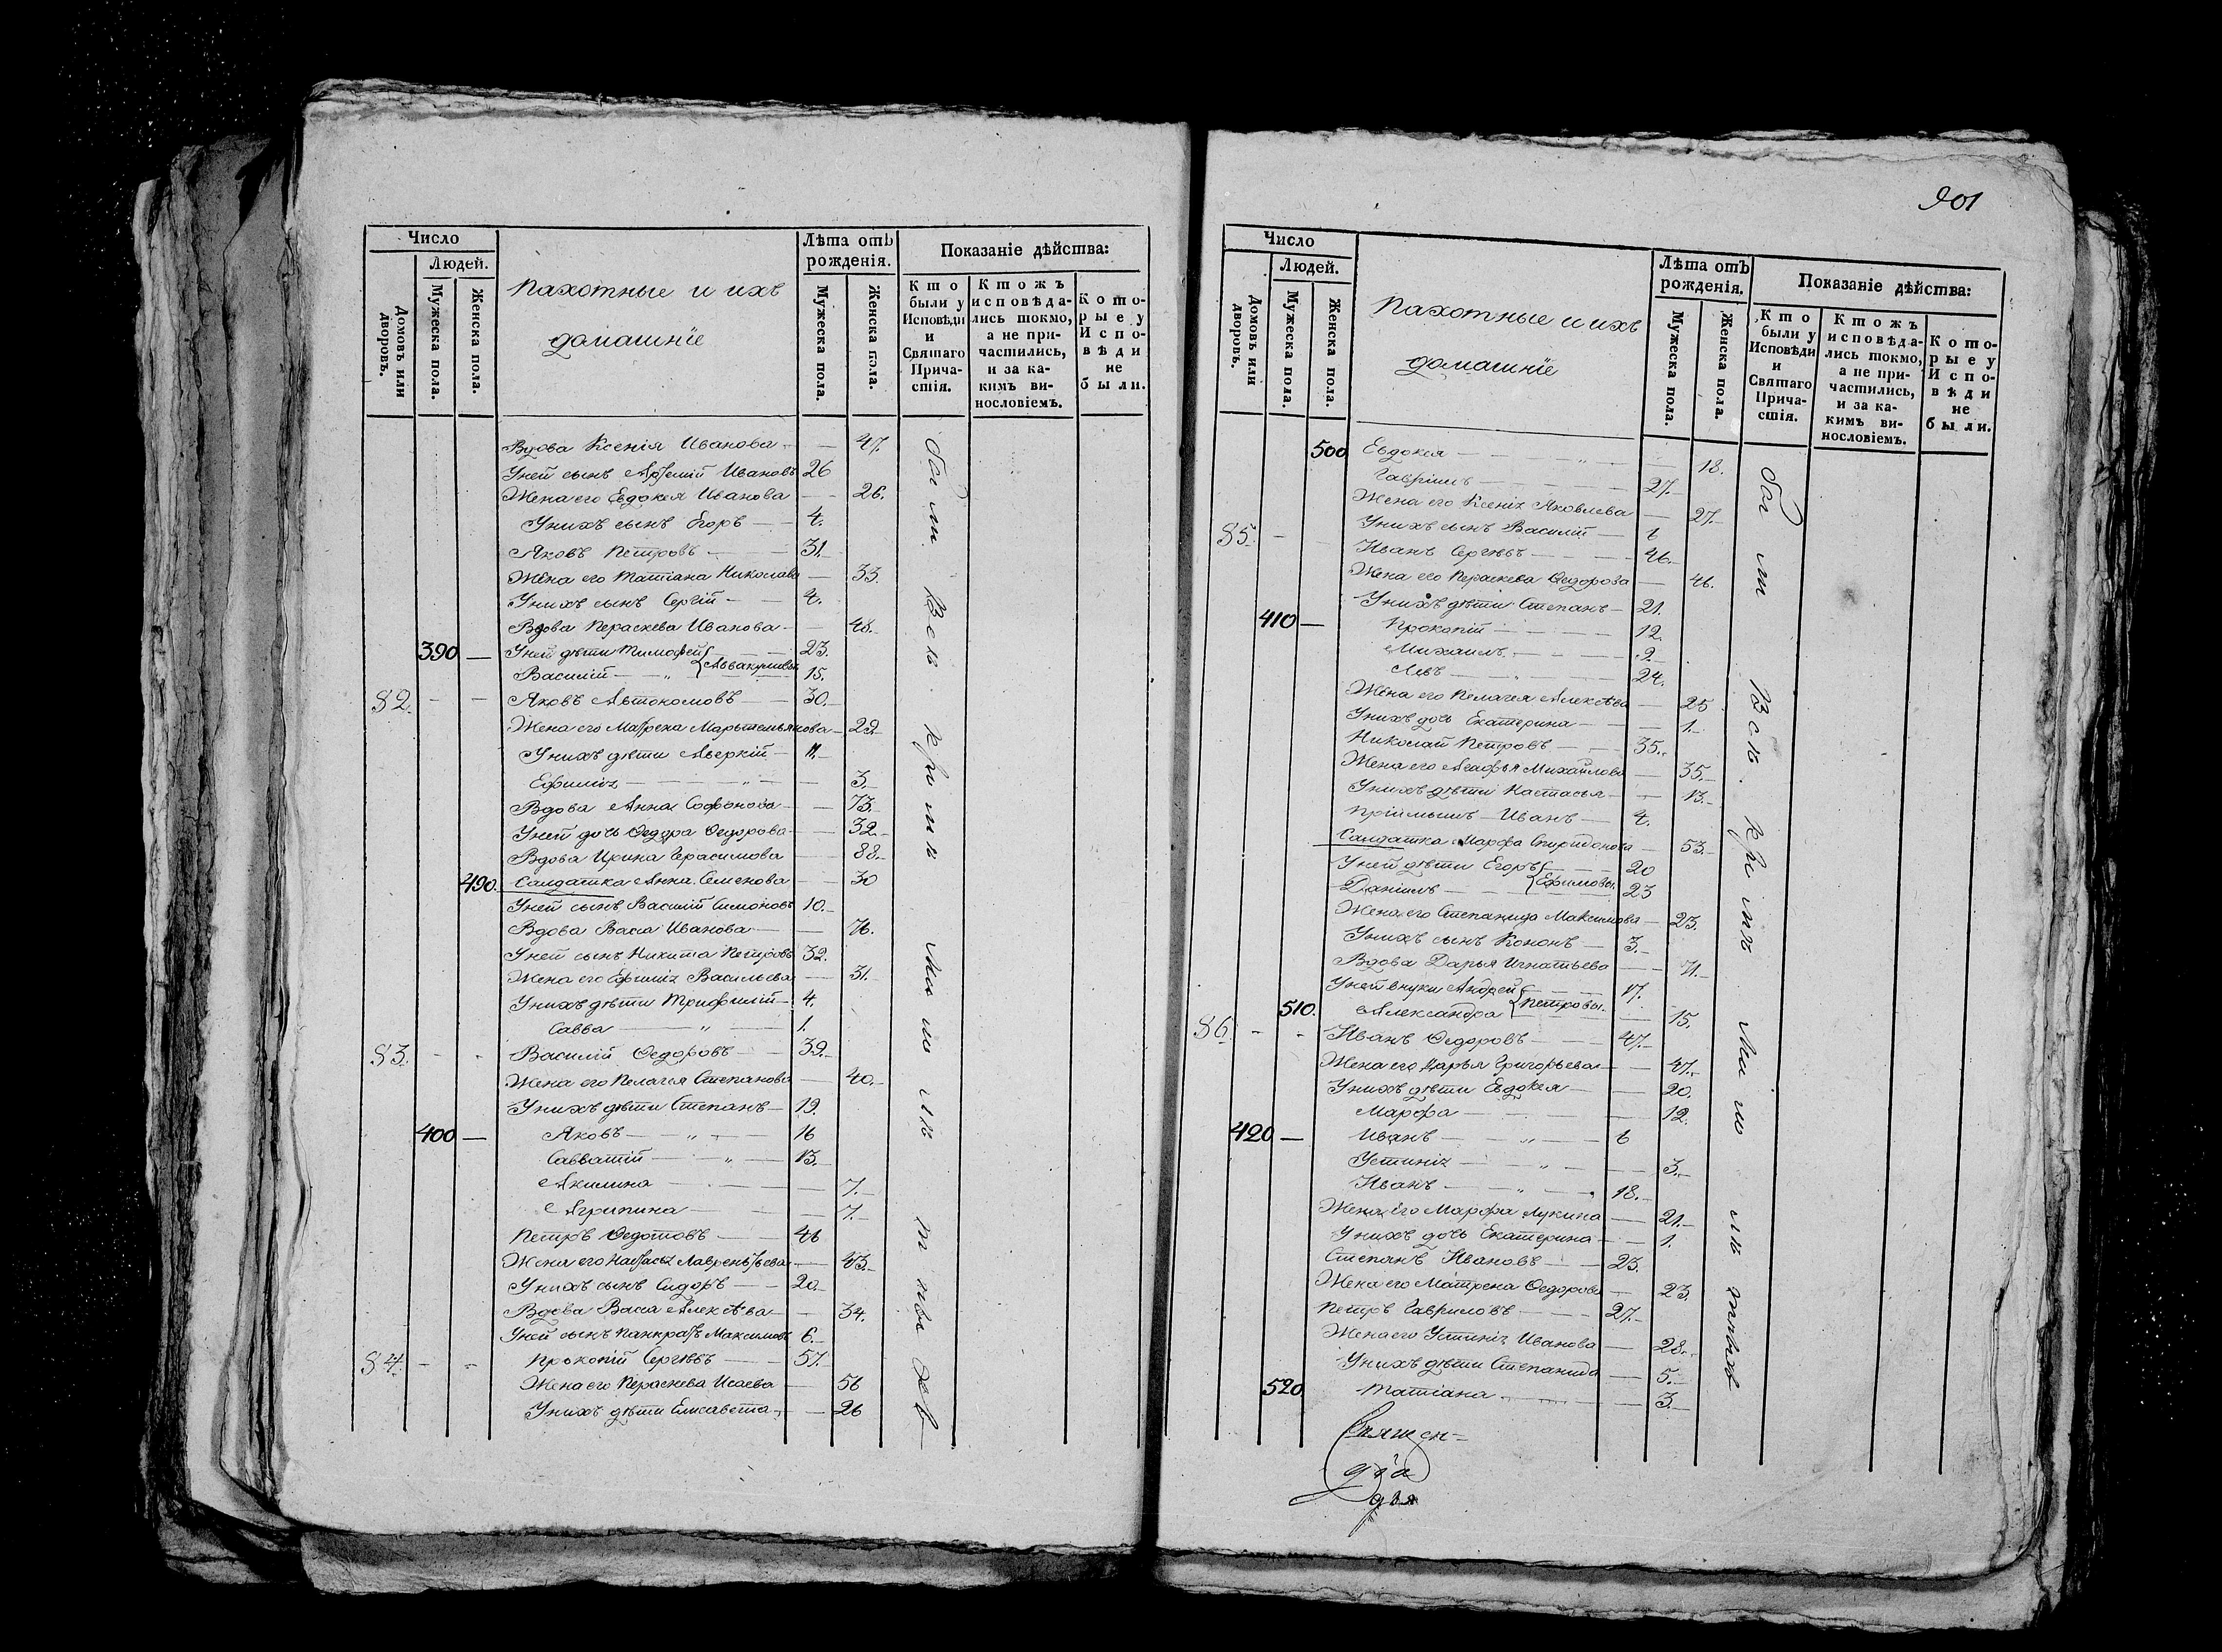 Число
Людей.
Домовъ или дворовъ.
Мужеска пола.
Женска пола.
Пахотные и ихъ
домашнїе
Лѣта отъ рожденія.
Мужеска пола.
Женска пола.
Показаніе дѣйства:
Кто были у Исповѣди и Святаго Причастія.
Ктожъ исповѣдались токмо, а не причастились, и за какимъ винословіемъ.
Которые у Исповѣди не были.
Вдова Ксенія Иванова — 47.
Уней сынъ Артемій Ивановъ 26
Жена его Евдокея Иванова — 26.
Унихъ сынъ Егоръ — 4.
Яковъ Петровъ — 31.
Жена его Татіана Николаева — 33.
Унихъ сынъ Сергій — 4.
Вдова Пераскева Иванова — 48.
390 — Уней дѣти Тимофей — 23.
Василій — „ { Аввакумовы 15.
82. - - Яковъ Автономовъ — 30.
Жена его Матрена Мартемьянова — 29
Унихъ дѣти Аверкій — 11.
Ефиміѧ — „ — 3.
Вдова Анна Софонова — 73.
Уней дочь Ѳедора Ѳедорова — 32.
Вдова Ирина Герасимова — 88.
490. Салдатка Анна Семенова — 30
Уней сынъ Василій Симоновъ 10.
Вдова Васса Иванова — 76.
Уней сынъ Никита Петровъ 32.
Жена его Ефиміѧ Васильева — 31.
Унихъ дѣти Трифилій — 4.
Савва — „ — 1.
83. - - Василій Ѳедоровъ — 39.
Жена его Пелагея Степанова — 40.
Унихъ дѣти Степанъ — 19.
400 — Яковъ — „ — 16
Савватій — „ — 13.
Акилина — 7.
Агрипина — 7.
Петръ Ѳедотовъ — 46
Жена его Настасьѧ Лаврентьева — 43.
Унихъ сынъ Сидоръ — 20.
Вдова Васса Алексѣева — 34.
Уней сынъ Панкратъ Максимовъ 6.
84. - - Прокопій Сергѣевъ — 57.
Жена его Пераскева Исаева — 56
Унихъ дѣти Елисавета — 26
901
Число
Людей.
Домовъ или дворовъ.
Мужеска пола.
Женска пола.
Пахотные и ихъ
домашнїе
Лѣта отъ рожденія.
Мужеска пола.
Женска пола.
Показаніе дѣйства:
Кто были у Исповѣди и Святаго Причастія.
Ктожъ исповѣдались токмо, а не причастились, и за какимъ винословіемъ.
Которые у Исповѣди не были.
500 Евдокея — „ — 18.
Гавріилъ — 27.
Жена его Ксеніѧ Яковлева — 27.
Унихъ сынъ Василій — 6
85. - Иванъ Сергѣевъ — 46.
Жена его Пераскева Ѳедорова — 46.
Унихъ дѣти Степанъ — 21.
410 — Прокопій — 12.
Михаилъ — 9.
Левъ — „ — 24.
Жена его Пелагея Алексѣева — 25
Унихъ дочь Екатерина — 1.
Николай Петровъ — 35.
Жена его Агафья Михайлова — 35.
Унихъ дѣти Настасья — 13.
Пріимышъ Иванъ — 4.
Салдатка Марфа Спиридонова — 53.
Уней дѣти Егоръ — 20
Даніилъ — { Ефимовы. 23
Жена его Степанида Максимова — 23.
Унихъ сынъ Кононъ — 3.
Вдова Дарья Игнатьева — 71.
Уней внуки Андрей — 17.
510. Александра { Петровы. 15.
86. - - Иванъ Ѳедоровъ — 47.
Жена его Дарья Григорьева — 47.
Унихъ дѣти Евдокея — 20.
Марфа — 12.
420 — Иванъ — „ — 6
Устиніѧ — „ — 3.
Иванъ — „ — 18.
Жена его Марфа Лукина — 21.
Унихъ дочь Екатерина — 1.
Степанъ Ивановъ — 23.
Жена его Матрена Ѳедорова — 23.
Петръ Гавриловъ — 27.
Жена его Устиніѧ Иванова — 28.
Унихъ дѣти Степанида — 5.
520 Татіана — 3.